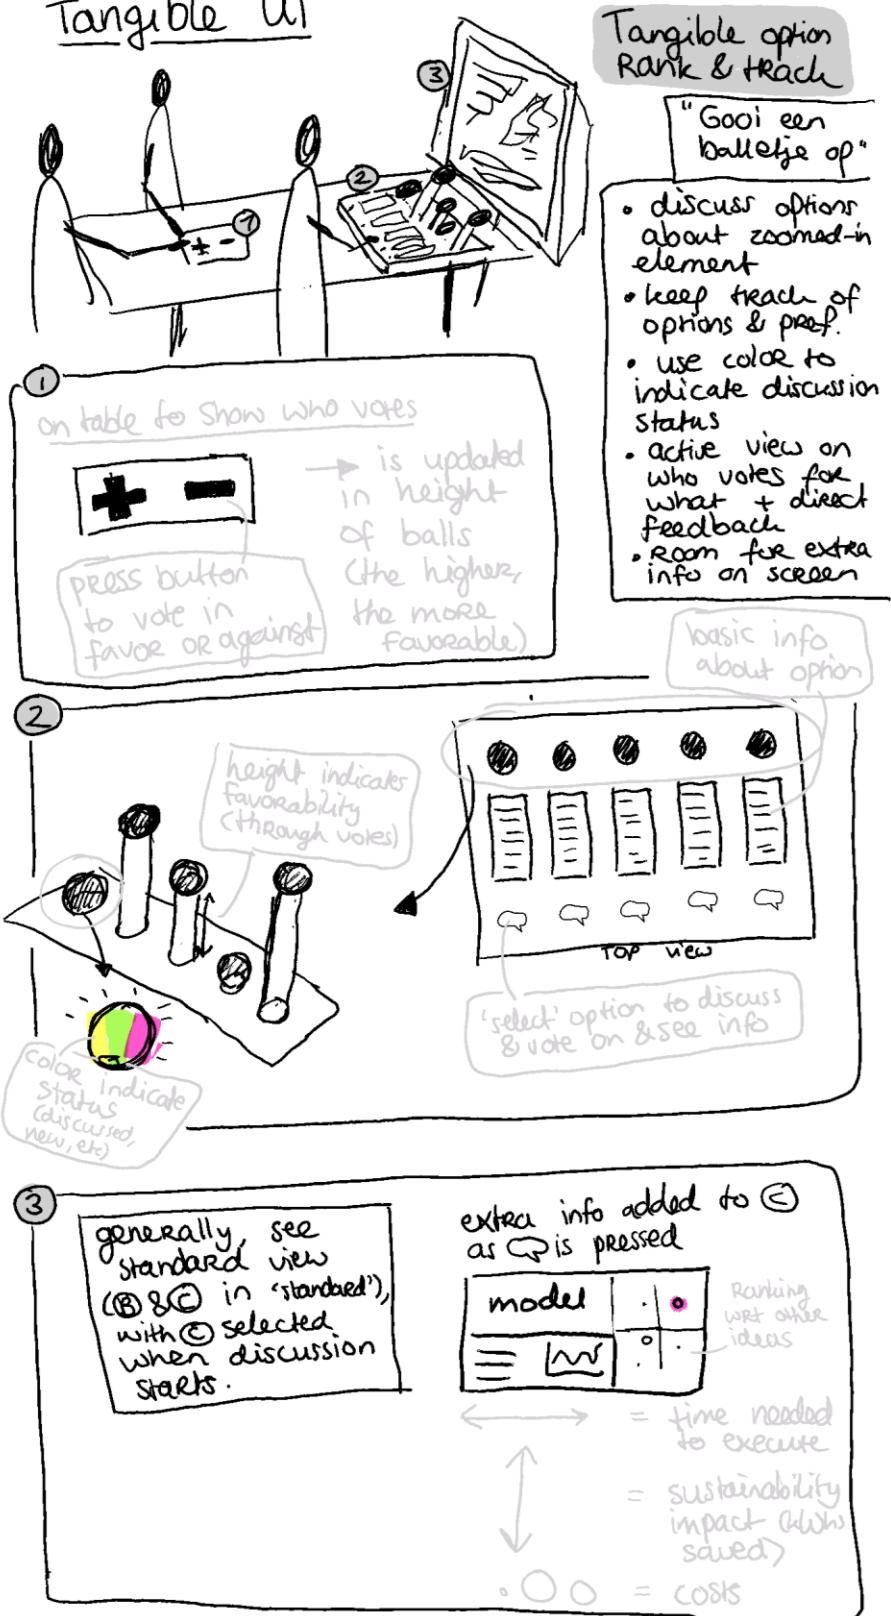 Tangible UI
Tangible option
Rank & track
"Gooi een
balletje op"
• discuss options
about zoomed-in
element
• keep track of
options & pref.
• use color to
indicate discussion
status
• active view on
who votes for
what + direct
feedback
• Room for extra
info on screen
3
2
1
+ -
1
on table to show who votes
+ -
→ is updated
in height
of balls
(the higher,
the more
favorable)
press button
to vote in
favor or against
basic info
about option
2
height indicates
favorability
(through votes)
TOP view
'select' option to discuss
& vote on & see info
color indicate
status
(discussed,
new, etc)
3
generally, see
standard view
(Ⓑ & Ⓒ in 'standard'),
with Ⓒ selected
when discussion
starts.
extra info added to Ⓒ
as is pressed
model
Ranking
WRT other
ideas
= time needed
to execute
= sustainability
impact (kWhs
saved)
= costs